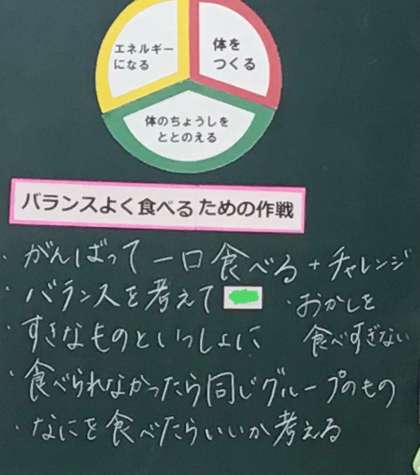 エネルギー
になる
体を
つくる
体のちょうしを
ととのえる
バランスよく食べるための作戦
・がんばって一口食べる+チャレンジ
・バランスを考えて
・おかしを
食べすぎない
・すきなものといっしょに
・食べられなかったら同じグループのもの
・なにを食べたらいいか考える